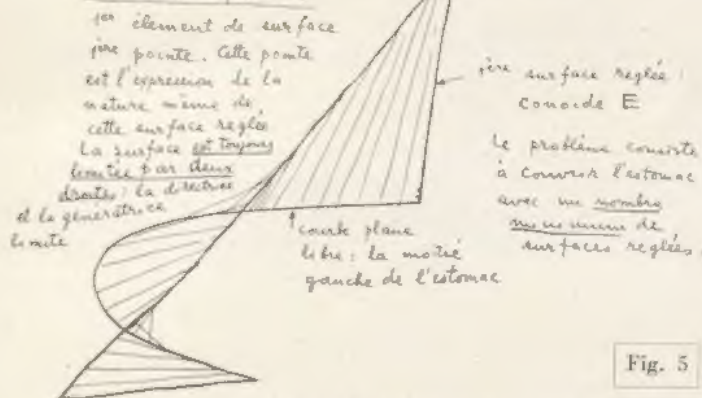 1er élément de surface
1ère pointe. Cette pointe
est l'expression de la
nature meme de
cette surface reglée
La surface est toujours
limitée par deux
droites : la directrice
et la génératrice
limite
1ère surface reglée :
conoide E
Le problème consiste
à couvrir l'estomac
avec un nombre
minimum de
surfaces reglées.
courbe plane
libre : la moitié
gauche de l'estomac
Fig. 5